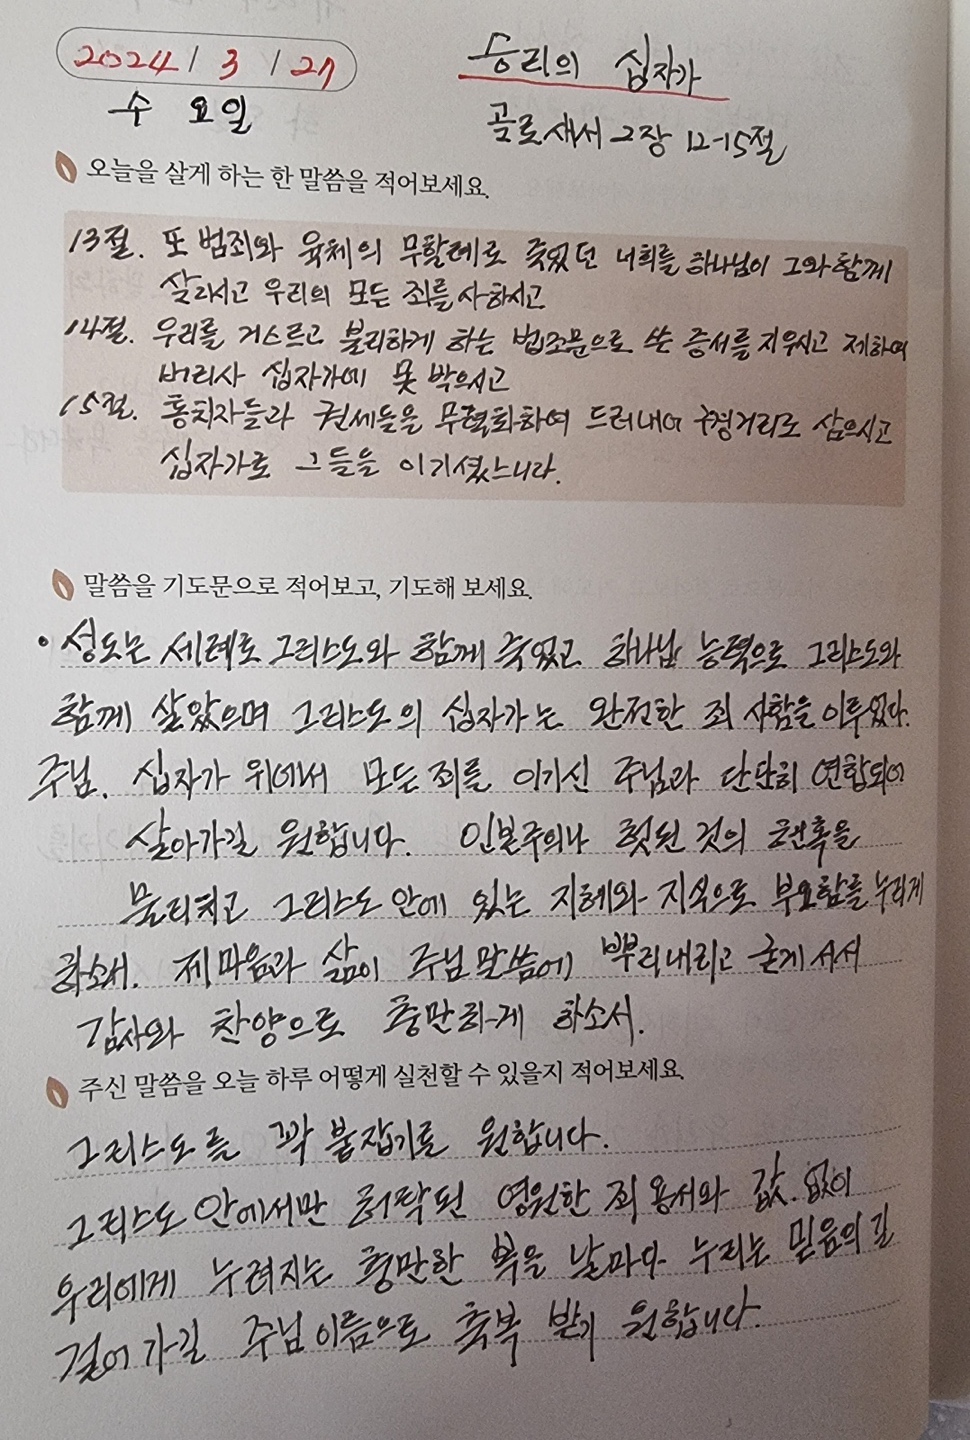 2024 / 3 / 27
승리의 십자가
수 요일
골로새서 2장 12-15절
오늘을 살게 하는 한 말씀을 적어보세요.
13절. 또 범죄와 육체의 무할례로 죽었던 너희를 하나님이 그와 함께
살리시고 우리의 모든 죄를 사하시고
14절. 우리를 거스르고 불리하게 하는 법조문으로 쓴 증서를 지우시고 제하여
버리사 십자가에 못 박으시고
15절. 통치자들과 권세들을 무력화하여 드러내어 구경거리로 삼으시고
십자가로 그들을 이기셨느니라.
말씀을 기도문으로 적어보고, 기도해 보세요.
• 성도는 세례로 그리스도와 함께 죽었고 하나님 능력으로 그리스도와
함께 살았으며 그리스도의 십자가는 완전한 죄 사함을 이루었다.
주님. 십자가 위에서 모든 죄를 이기신 주님과 단단히 연합되어
살아가길 원합니다. 인본주의나 헛된 것의 유혹을
물리치고 그리스도 안에 있는 지혜와 지식으로 부요함을 누리게
하소서. 제 마음과 삶이 주님 말씀에 뿌리내리고 굳게 서서
감사와 찬양으로 충만하게 하소서.
주신 말씀을 오늘 하루 어떻게 실천할 수 있을지 적어보세요.
그리스도를 꽉 붙잡기를 원합니다.
그리스도 안에서만 허락된 영원한 죄 용서와 값 없이
우리에게 누려지는 충만한 복을 날마다 누리는 믿음의 길
걸어가길 주님 이름으로 축복 받기 원합니다.